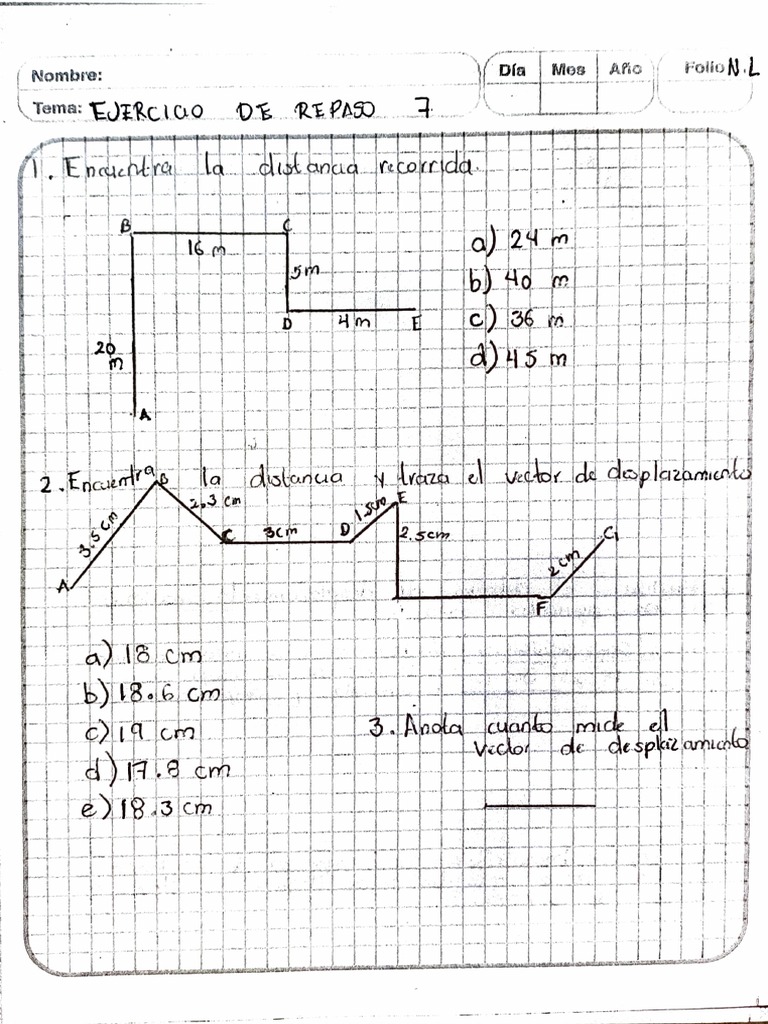 Nombre:
Día Mes Año Folio N.L
Tema: EJERCICIO DE REPASO 7
1. Encuentra la distancia recorrida.
B C
16 m
5m
D 4m E
20
m
A
a) 24 m
b) 40 m
c) 36 m
d) 45 m
2. Encuentra la distancia y traza el vector de desplazamiento
B
3.5 cm
2.3 cm
C 3cm D
1.5cm
E
2.5cm
A
F
2 cm
G
a) 18 cm
b) 18.6 cm
c) 19 cm
d) 17.8 cm
e) 18.3 cm
3. Anota cuanto mide el
vector de desplazamiento